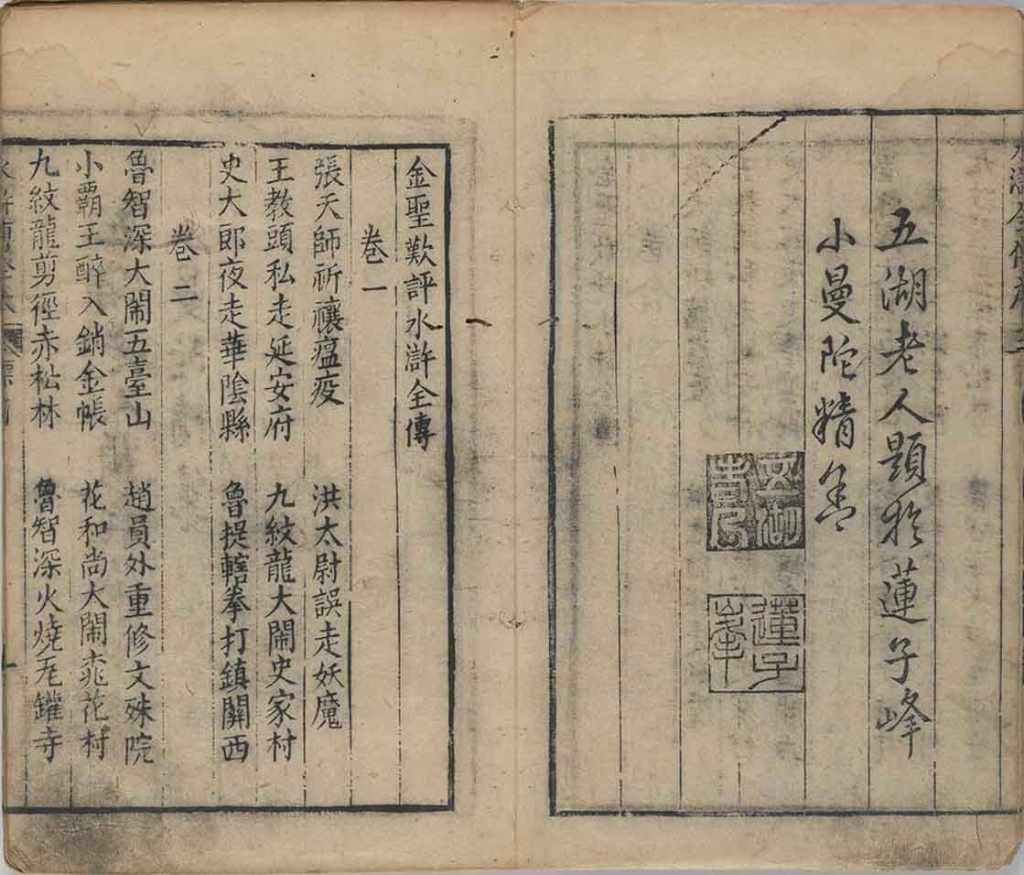 五湖老人題於蓮子峰
小曼陀精舍
五湖老人
蓮子峯
金聖歎評水滸全傳
卷一
張天師祈禳瘟疫　洪太尉誤走妖魔
王教頭私走延安府　九紋龍大鬧史家村
史大郎夜走華陰縣　魯提轄拳打鎮關西
卷二
魯智深大鬧五臺山　趙員外重修文殊院
小霸王醉入銷金帳　花和尚大鬧桃花村
九紋龍剪徑赤松林　魯智深火燒瓦罐寺